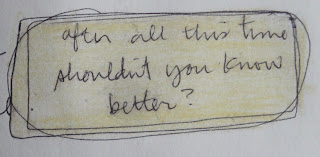 after all this time
shouldn't you know
better?